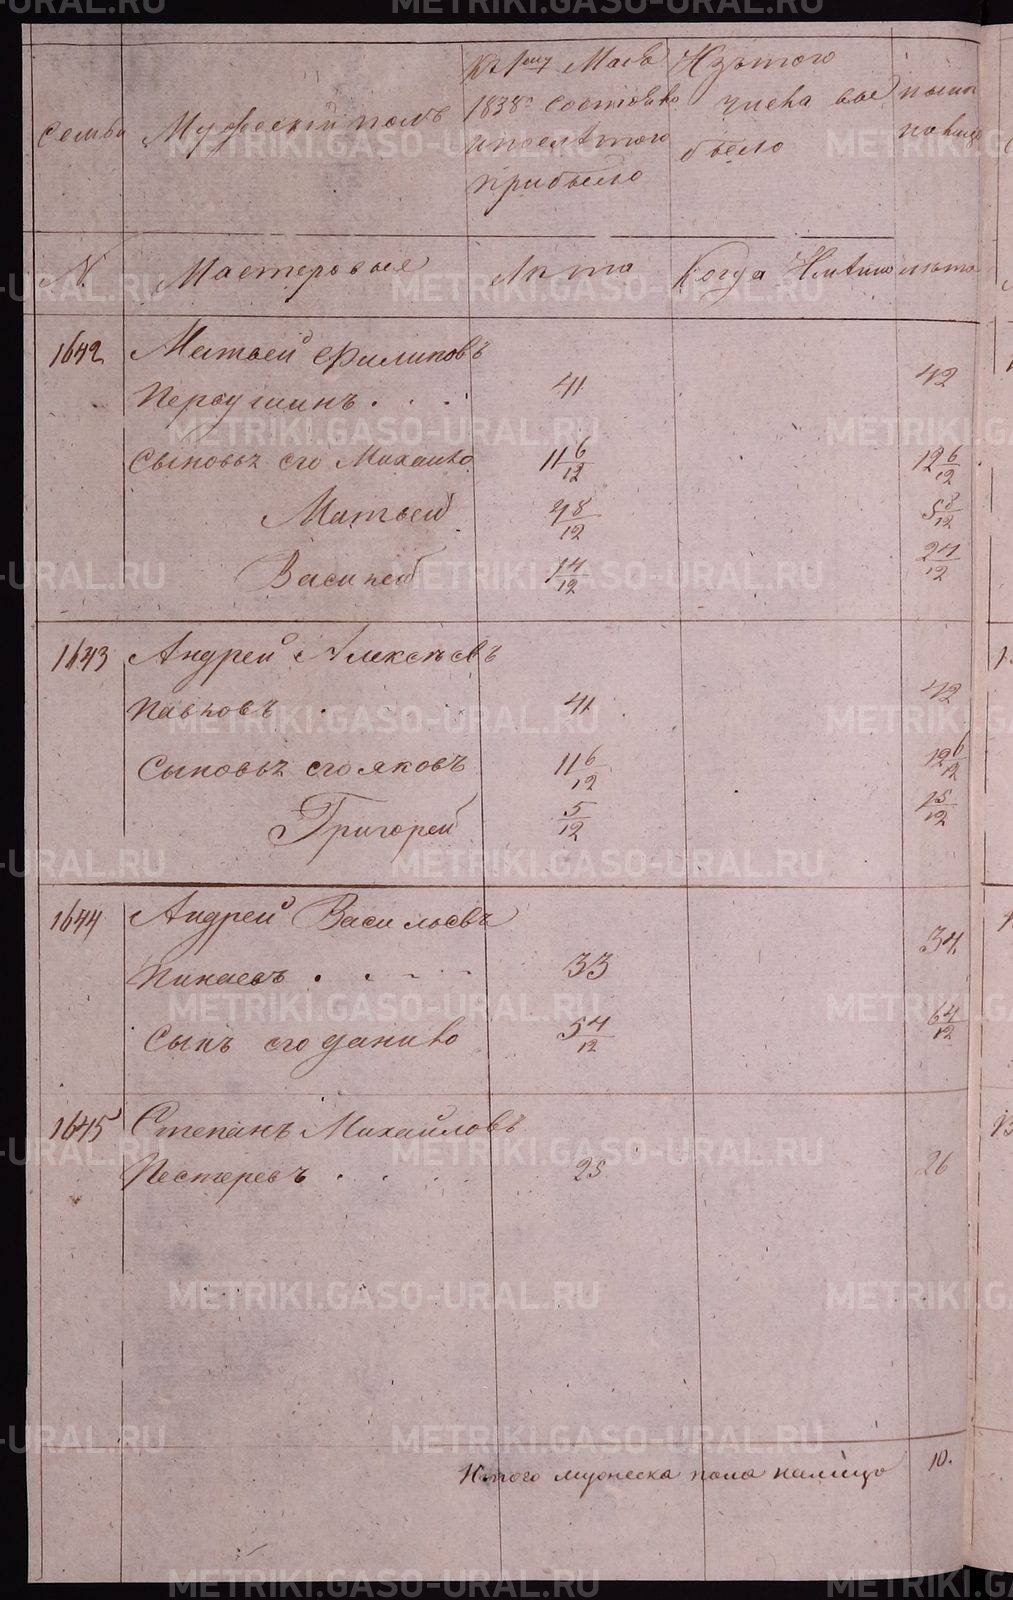 Семьи
Мужескій полъ
Къ 1му Маiя
1838г состояло
и после того
прибыло
Изъ того
числа вы
было
ныне
налицо
N
Мастеровые
Лета
Когда Именно
лета
1642 Матвей Филиповъ
Первушинъ . . . 41 42
Сыновья его Михайло 11 6/12 12 6/12
Матвей 4 8/12 5 8/12
Василей 1 4/12 2 4/12
1643 Андрей Алексеевъ
Павловъ . . . 41 42
Сыновья его Яковъ 11 6/12 12 6/12
Григорей 5/12 1 5/12
1644 Андрей Васильевъ
Пинаевъ . . - - 33 34
Сынъ его Данило 5 4/12 6 4/12
1645 Степанъ Михайловъ
Пестеревъ . . . 25 26
Итого мужеска пола налицо 10.
METRIKI.GASO-URAL.RU